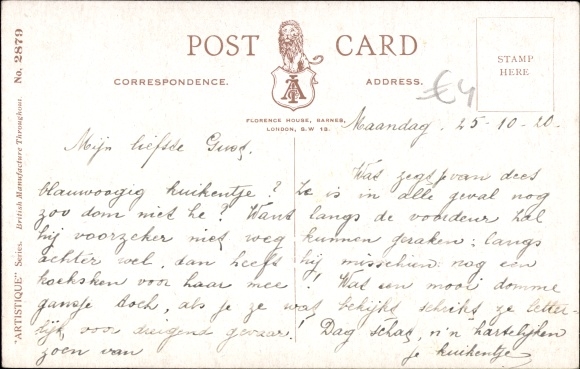 POST CARD
CORRESPONDENCE.
ADDRESS.
STAMP
HERE
FLORENCE HOUSE, BARNES,
LONDON, S.W 13.
"ARTISTIQUE" Series. British Manufacture Throughout. No. 2879
€4
Maandag. 25-10-20.
Mijn liefste
Was zegt je van dees
blauwoogig kuikentje? Ze is in alle geval nog
zoo dom niet he? Want langs de voordeur zal
hij voorzeker niet weg kunnen geraken; langs
achter wel, dan heeft hij misschien nog een
koeksken voor haar mee! Was een mooi domme
gansje toch, als je ze wat bekijkt schrikt ze letter-
lijk voor dreigend gevaar! Dag schat, n'n hartelijken
zoen van
je kuikentje